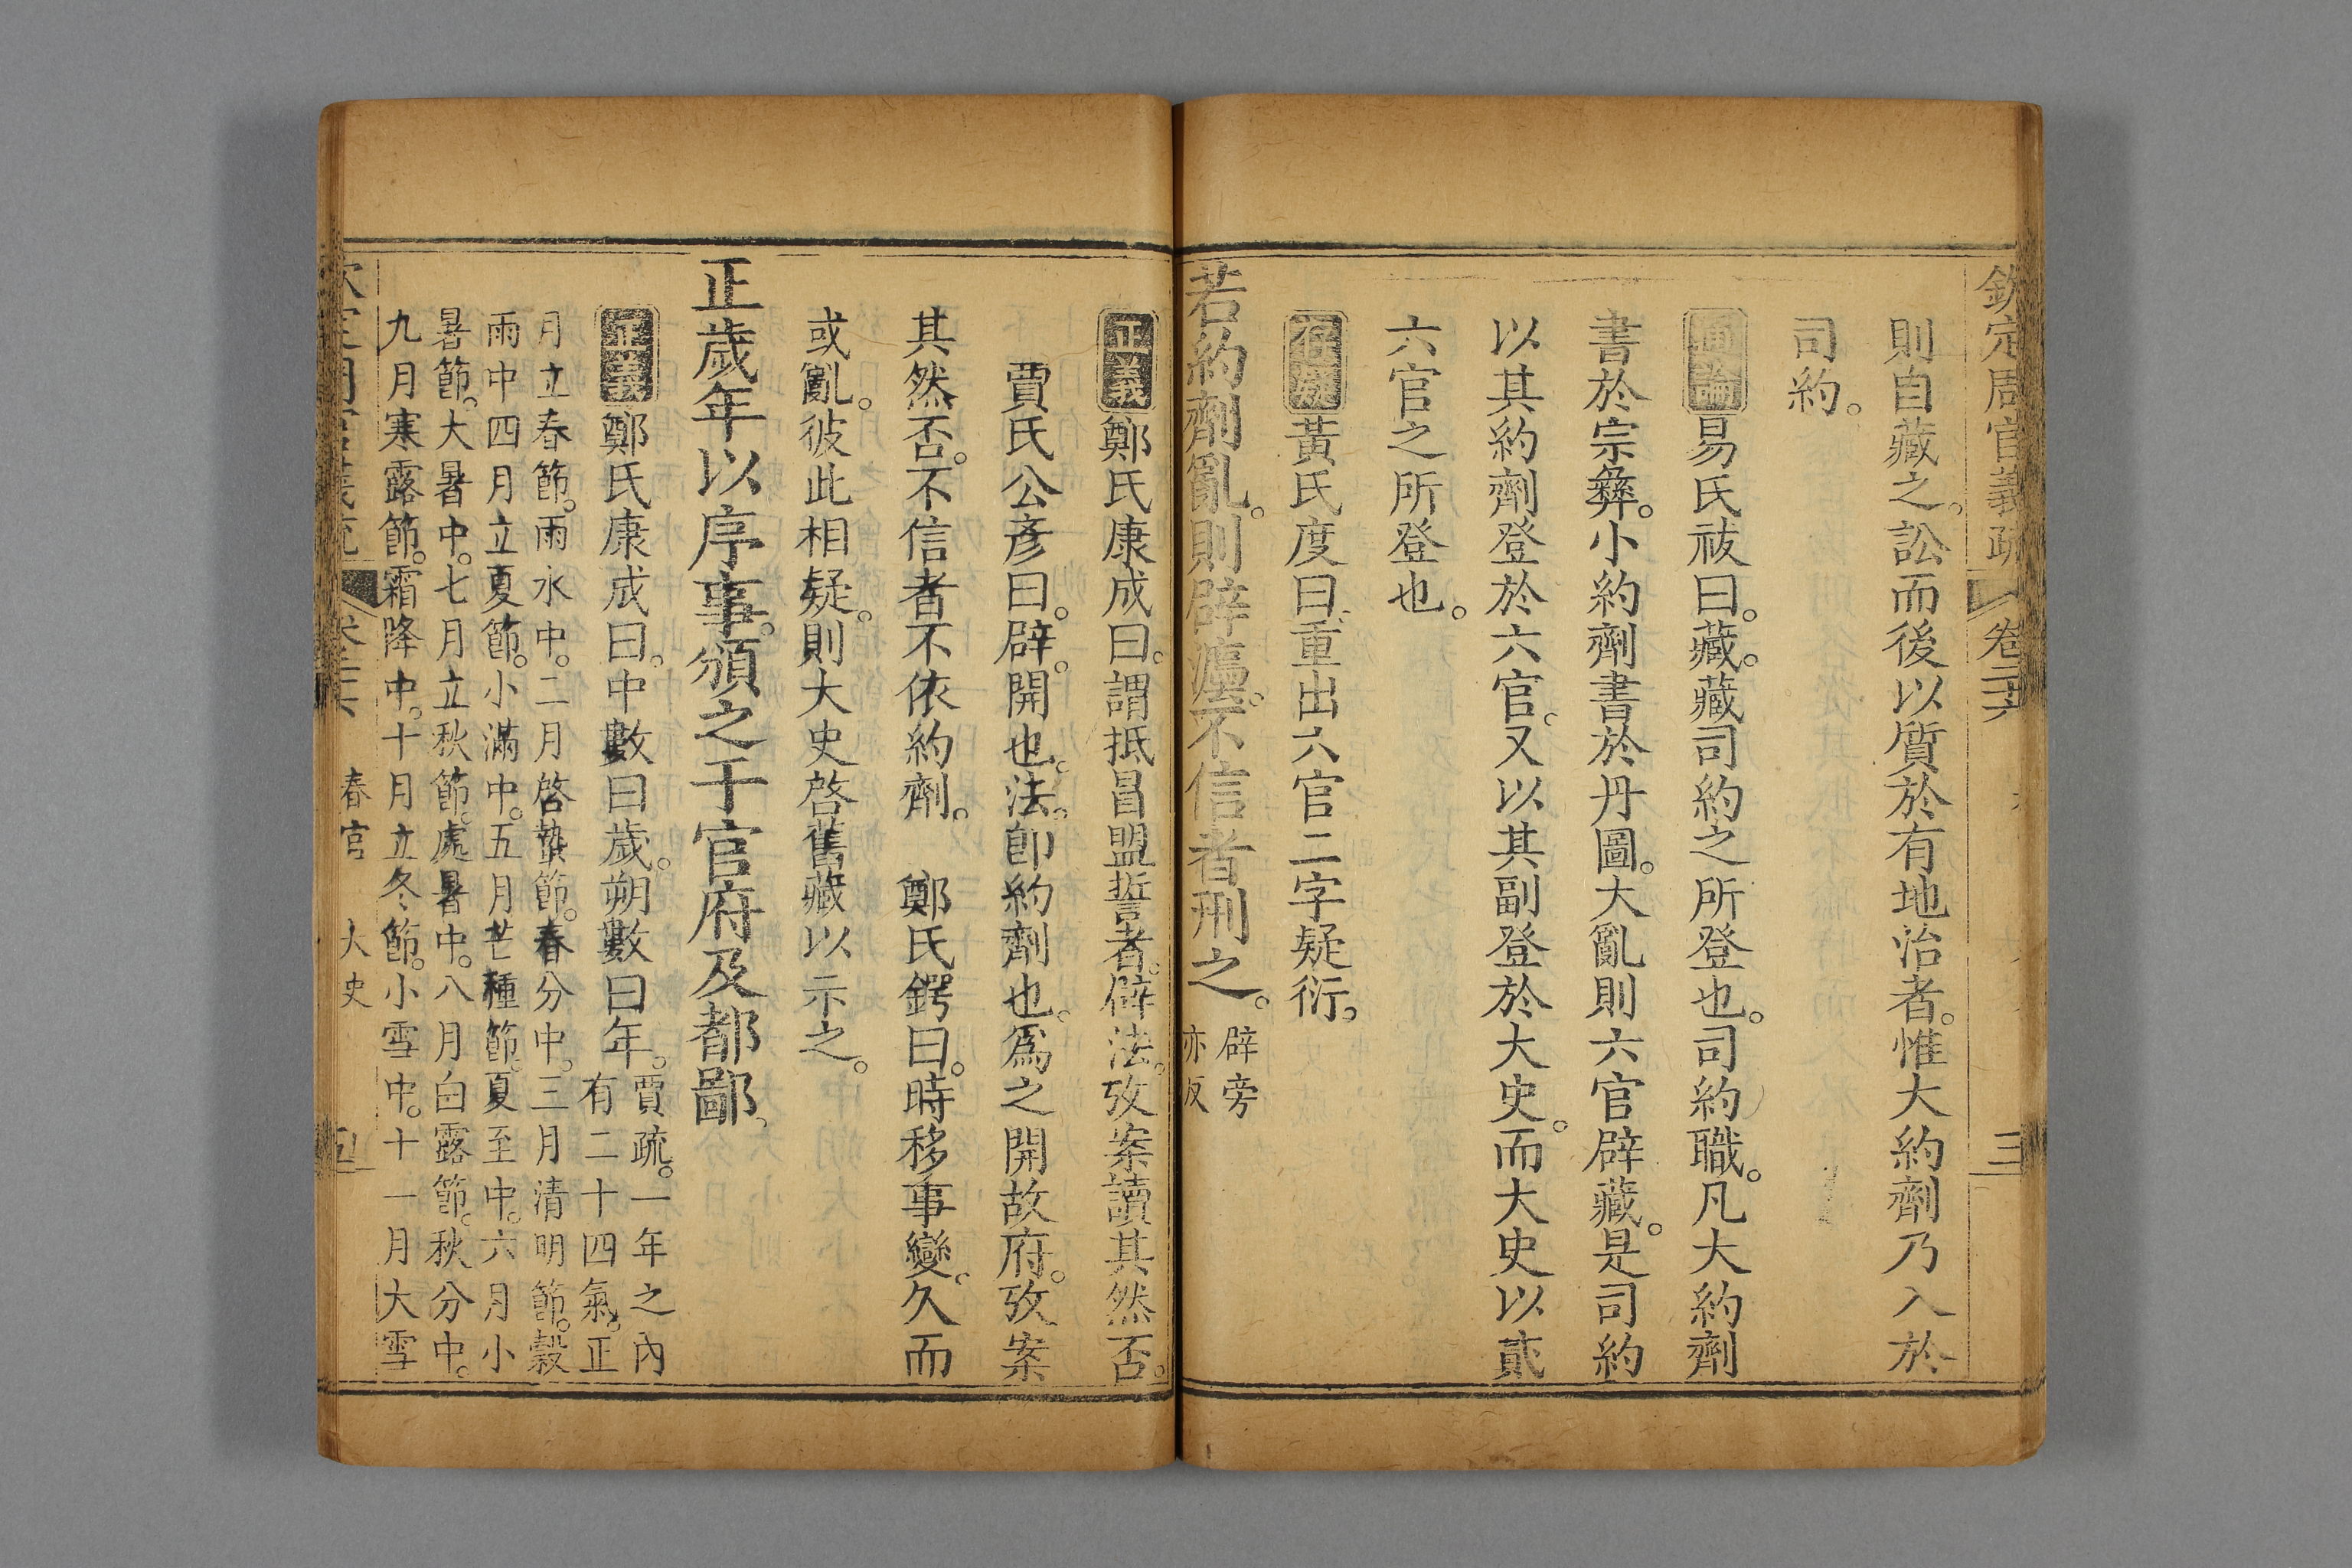 欽定周官義疏 卷二十六 三
則自藏之。訟而後以質於有地治者。惟大約劑乃入於
司約。
通論易氏祓曰。藏。藏司約之所登也。司約職。凡大約劑
書於宗彝。小約劑書於丹圖。大亂則六官辟藏。是司約
以其約劑登於六官。又以其副登於大史。而大史以貳
六官之所登也。
存疑黃氏度曰。重出六官二字疑衍。
若約劑亂。則辟灋。不信者刑之。辟旁
亦反
正義鄭氏康成曰。謂抵冒盟誓者。辟法。攷案讀其然否。
賈氏公彥曰。辟。開也。法。卽約劑也。爲之開故府。攷案
其然否。不信者不依約劑。 鄭氏鍔曰。時移事變。久而
或亂。彼此相疑。則大史啓舊藏以示之。
正歲年以序事。頒之于官府及都鄙。
正義鄭氏康成曰。中數曰歲。朔數曰年。賈疏。一年之內
有二十四氣。正
月立春節。雨水中。二月啓蟄節。春分中。三月清明節。穀
雨中四月立夏節。小滿中。五月芒種節。夏至中。六月小
暑節。大暑中。七月立秋節。處暑中。八月白露節。秋分中。
九月寒露節。霜降中。十月立冬節。小雪中。十一月大雪
春官 大史